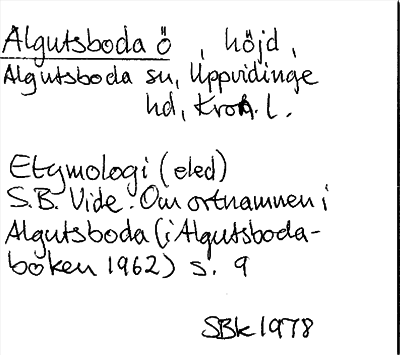 Algutsboda ö, höjd,
Algutsboda sn, Uppvidinge
hd, Kron. l.
Etymologi (eled)
S.B. Vide: Om ortnamnen i
Algutsboda (i Algutsboda-
boken 1962) s. 9
SBk 1978